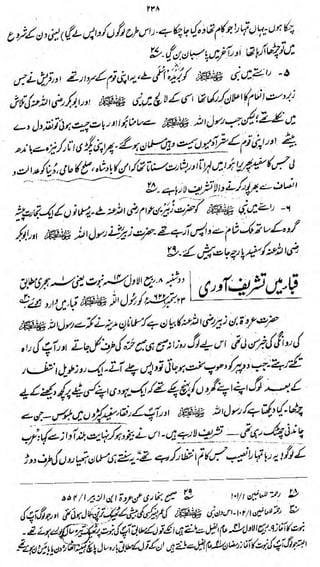 ۲۳۸
چکا ہوں۔ یہاں تمہارا جو کام تھا وہ کیا جا چکا ہے۔ راس طرح لوگوں کو واپس لے گیا) یعنی دن کے شروع
میں تو چڑھا آرہا تھا اور آخر میں پاسبان بن گیا۔
۵ - راستے میں نبی ﷺ کو بُریدہ اسلمی ملے۔ یہ اپنی قوم کے سردار تھے اور قریش نے جس
زبردست انعام کا اعلان کر رکھا تھا اسی کے لالچ میں نبی ﷺ اور ابوبکر رضی اللہ عنہ کی تلاش
میں نکلے تھے؛ لیکن جب رسول اللہ ﷺ سے سامنا ہوا اور بات چیت ہوئی تو نقد دل دے
بیٹھے اور اپنی قوم کے ستر آدمیوں سمیت وہیں مسلمان ہو گئے۔ پھر اپنی پگڑی اتار کر نیزہ سے باندھ
لی جس کا سفید پھریرا ہوا میں لہراتا اور بشارت سناتا تھا کہ امن کا بادشاہ، صلح کا حامی، دنیا کو عدالت و
انصاف سے بھرپور کرنے والا تشریف لا رہا ہے۔
۶ - راستے میں نبی ﷺ کو حضرت زبیر بن عوام رضی اللہ عنہ ملے۔ یہ مسلمانوں کے ایک تجارت پیشہ
گروہ کے ساتھ ملک شام سے واپس آرہے تھے۔ حضرت زبیر نے رسول اللہ ﷺ اور ابوبکر
رضی اللہ عنہ کو سفید پارچہ جات پیش کئے۔
قباء میں تشریف آوری
دو شنبہ ۸ ربیع الاول ۱۴ نبوت یعنی ۱ ہجری مطابق
۲۳ ستمبر ۶۲۲ کو رسول اللہ ﷺ قباء میں وارد ہوئے
حضرت عروہ بن زبیر رضی اللہ عنہ کا بیان ہے کہ مسلمانان مدینہ نے مکہ سے رسول اللہ ﷺ
کی روانگی کی خبر سن لی تھی۔ اس لیے لوگ روزانہ صبح ہی صبح حرہ کی طرف نکل جاتے اور آپ کی راہ
تکتے رہتے۔ جب دوپہر کو دھوپ سخت ہو جاتی تو واپس پلٹ آتے۔ ایک روز طویل انتظار
کے بعد لوگ اپنے اپنے گھروں کو پہنچ چکے تھے کہ ایک یہودی اپنے کسی ٹیلے پر کچھ دیکھنے کے لیے
چڑھا۔ کیا دیکھتا ہے کہ رسول اللہ ﷺ اور آپ کے رفقاء سفید کپڑوں میں ملبوس — جن سے
چاندنی چھٹک رہی تھی — تشریف لا رہے ہیں۔ اس نے بیخود ہو کر نہایت بلند آواز سے کہا: عرب
کے لوگو! یہ رہا تمہارا نصیب جس کا تم انتظار کر رہے تھے۔ یہ سنتے ہی مسلمان ہتھیاروں کی طرف دوڑ
۲۸ رحمۃ للعالمین ۱/۱۰۱ ۲۹ صحیح بخاری عن عروۃ ابن الزبیر ۱/۵۵۴
رحمۃ للعالمین ۱/۱۰۲